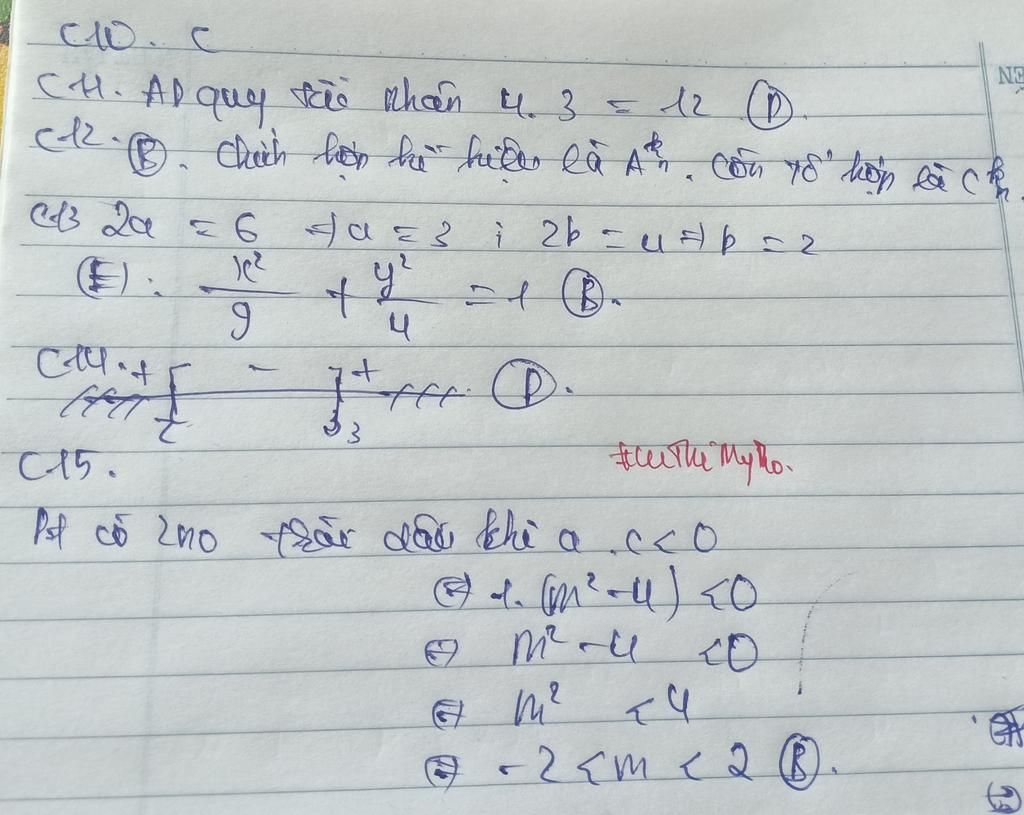 C10. C
C11. AD quy tắc nhân 4.3 = 12 (D).
C12. (B). Chỉnh hợp kí hiệu là Aᵏₙ. Còn tổ hợp là Cᵏₙ.
C13 2a = 6 => a = 3 ; 2b = 4 => b = 2
(E): x²/9 + y²/4 = 1 (B).
C14. + [ - ] + (D).
2 3
C15.
#LeThiMyHo.
Pt có 2 no trái dấu khi a.c < 0
<=> 1.(m² - 4) < 0
<=> m² - 4 < 0
<=> m² < 4
<=> -2 < m < 2 (B).